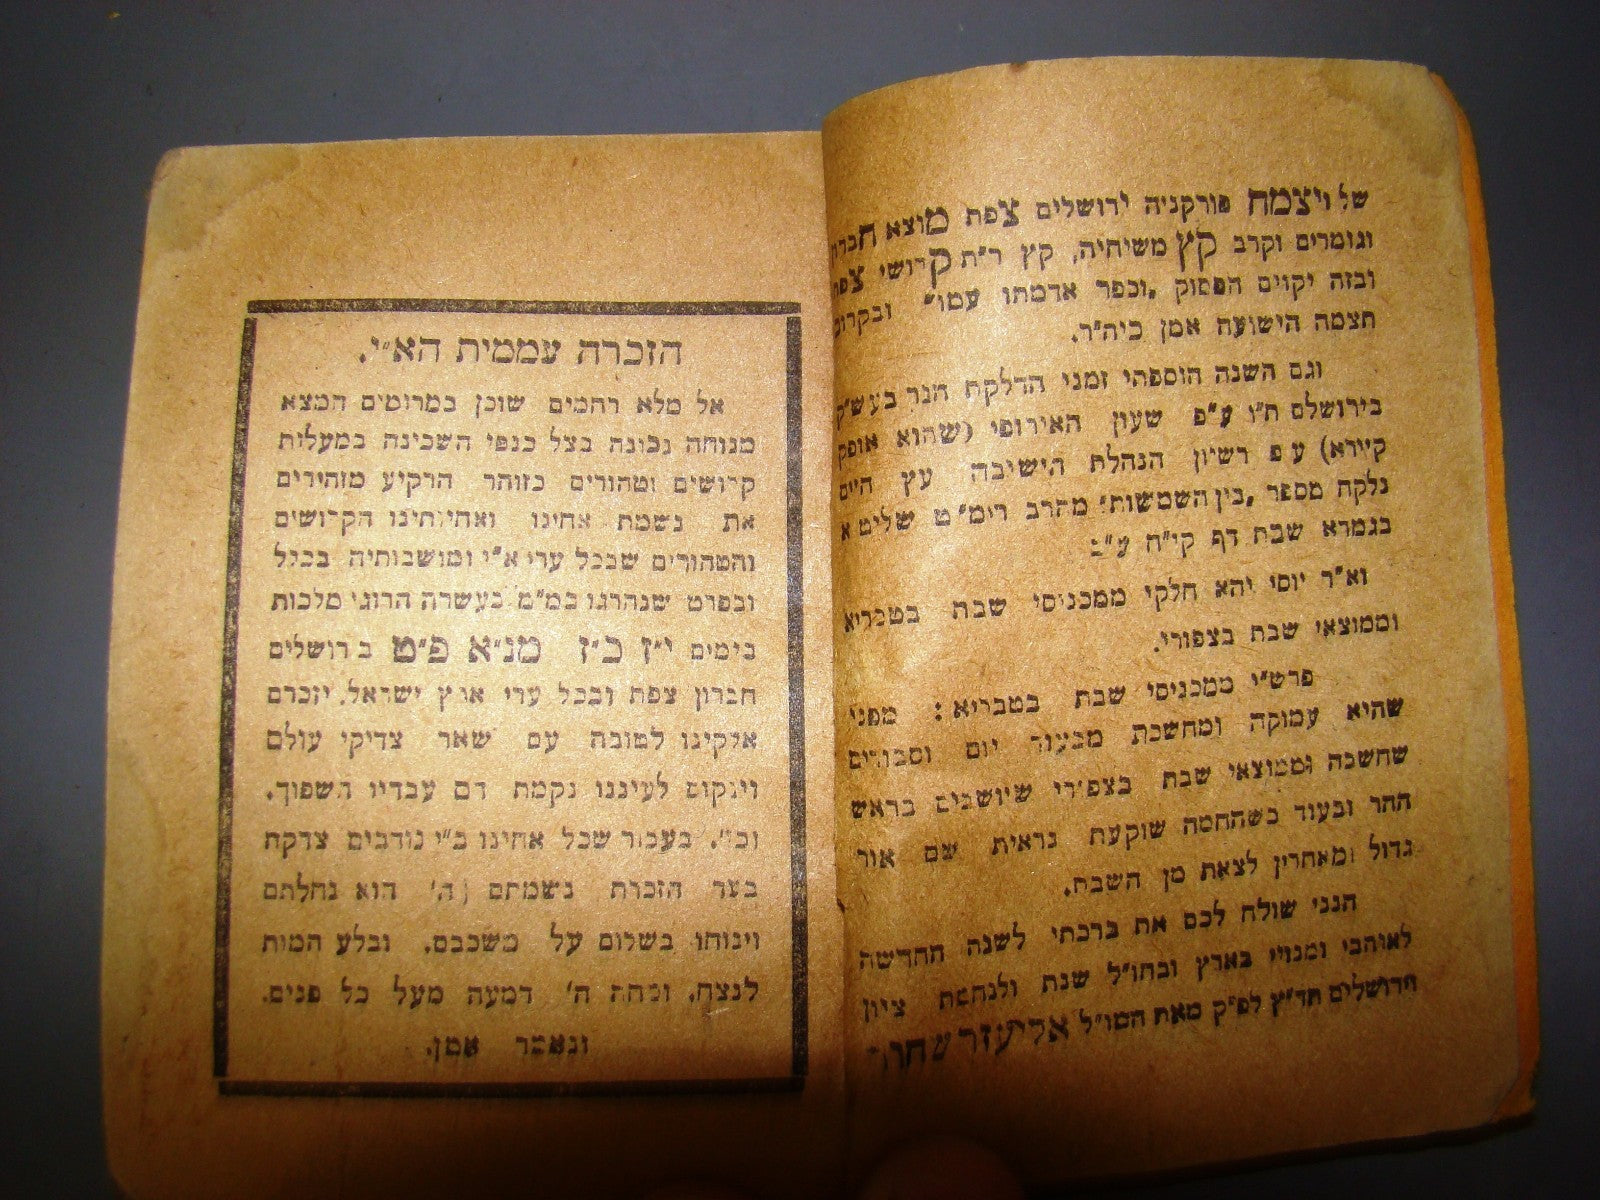 של ויצמח פורקניה ירושלים צפת מוצא חברון
וגומרים וקרב קץ משיחיה, קץ ר״ת קדושי צפת
ובזה יקוים הפסוק „וכפר אדמתו עמו״ ובקרוב
תצמח הישועה אמן ביה״ר.
וגם השנה הוספתי זמני הדלקת הנר בעש״ק
בירושלם ת״ו ע״פ שעון האירופי (שהוא אופק
קיירא) ע״פ רשיון הנהלת הישיבה עץ חיים
נלקח מספר „בין השמשות״ מהרב רימ״ט שליט״א
בגמרא שבת דף קי״ח ע״ב
וא״ר יוסי יהא חלקי ממכניסי שבת בטבריא
וממוצאי שבת בצפורי.
פרש״י ממכניסי שבת בטבריא : מפני
שהיא עמוקה ומחשכת מבעוד יום וסבורים
שחשכה וממוצאי שבת בצפורי שיושבים בראש
ההר ובעוד כשהחמה שוקעת נראית שם אור
גדול ומאחרין לצאת מן השבת.
הנני שולח לכם את ברכתי לשנה החדשה
לאוהבי ומנויי בארץ ובחו״ל שנת ולנחמת ציון
וירושלים תד״ץ לפ״ק מאת המו״ל אליעזר שחר
הזכרה עממית הא״י.
אל מלא רחמים שוכן במרומים המצא
מנוחה נכונה בצל כנפי השכינה במעלות
קדושים וטהורים כזוהר הרקיע מזהירים
את נשמת אחינו ואחיותינו הקדושים
והטהורים שבכל ערי א״י ומושבותיה בכלל
ובפרט שנהרגו במ״מ בעשרה הרוגי מלכות
בימים י״ז כ״ז מנ״א פ״ט בירושלים
חברון צפת ובכל ערי ארץ ישראל, יזכרם
אלקינו לטובה עם שאר צדיקי עולם
וינקום לעיננו נקמת דם עבדיו השפוך.
וכו׳. בעבור שכל אחינו ב״י נודבים צדקה
בעד הזכרת נשמתם (ה׳ הוא נחלתם
וינוחו בשלום על משכבם. ובלע המות
לנצח, ומחה ה׳ דמעה מעל כל פנים.
ונאמר אמן.